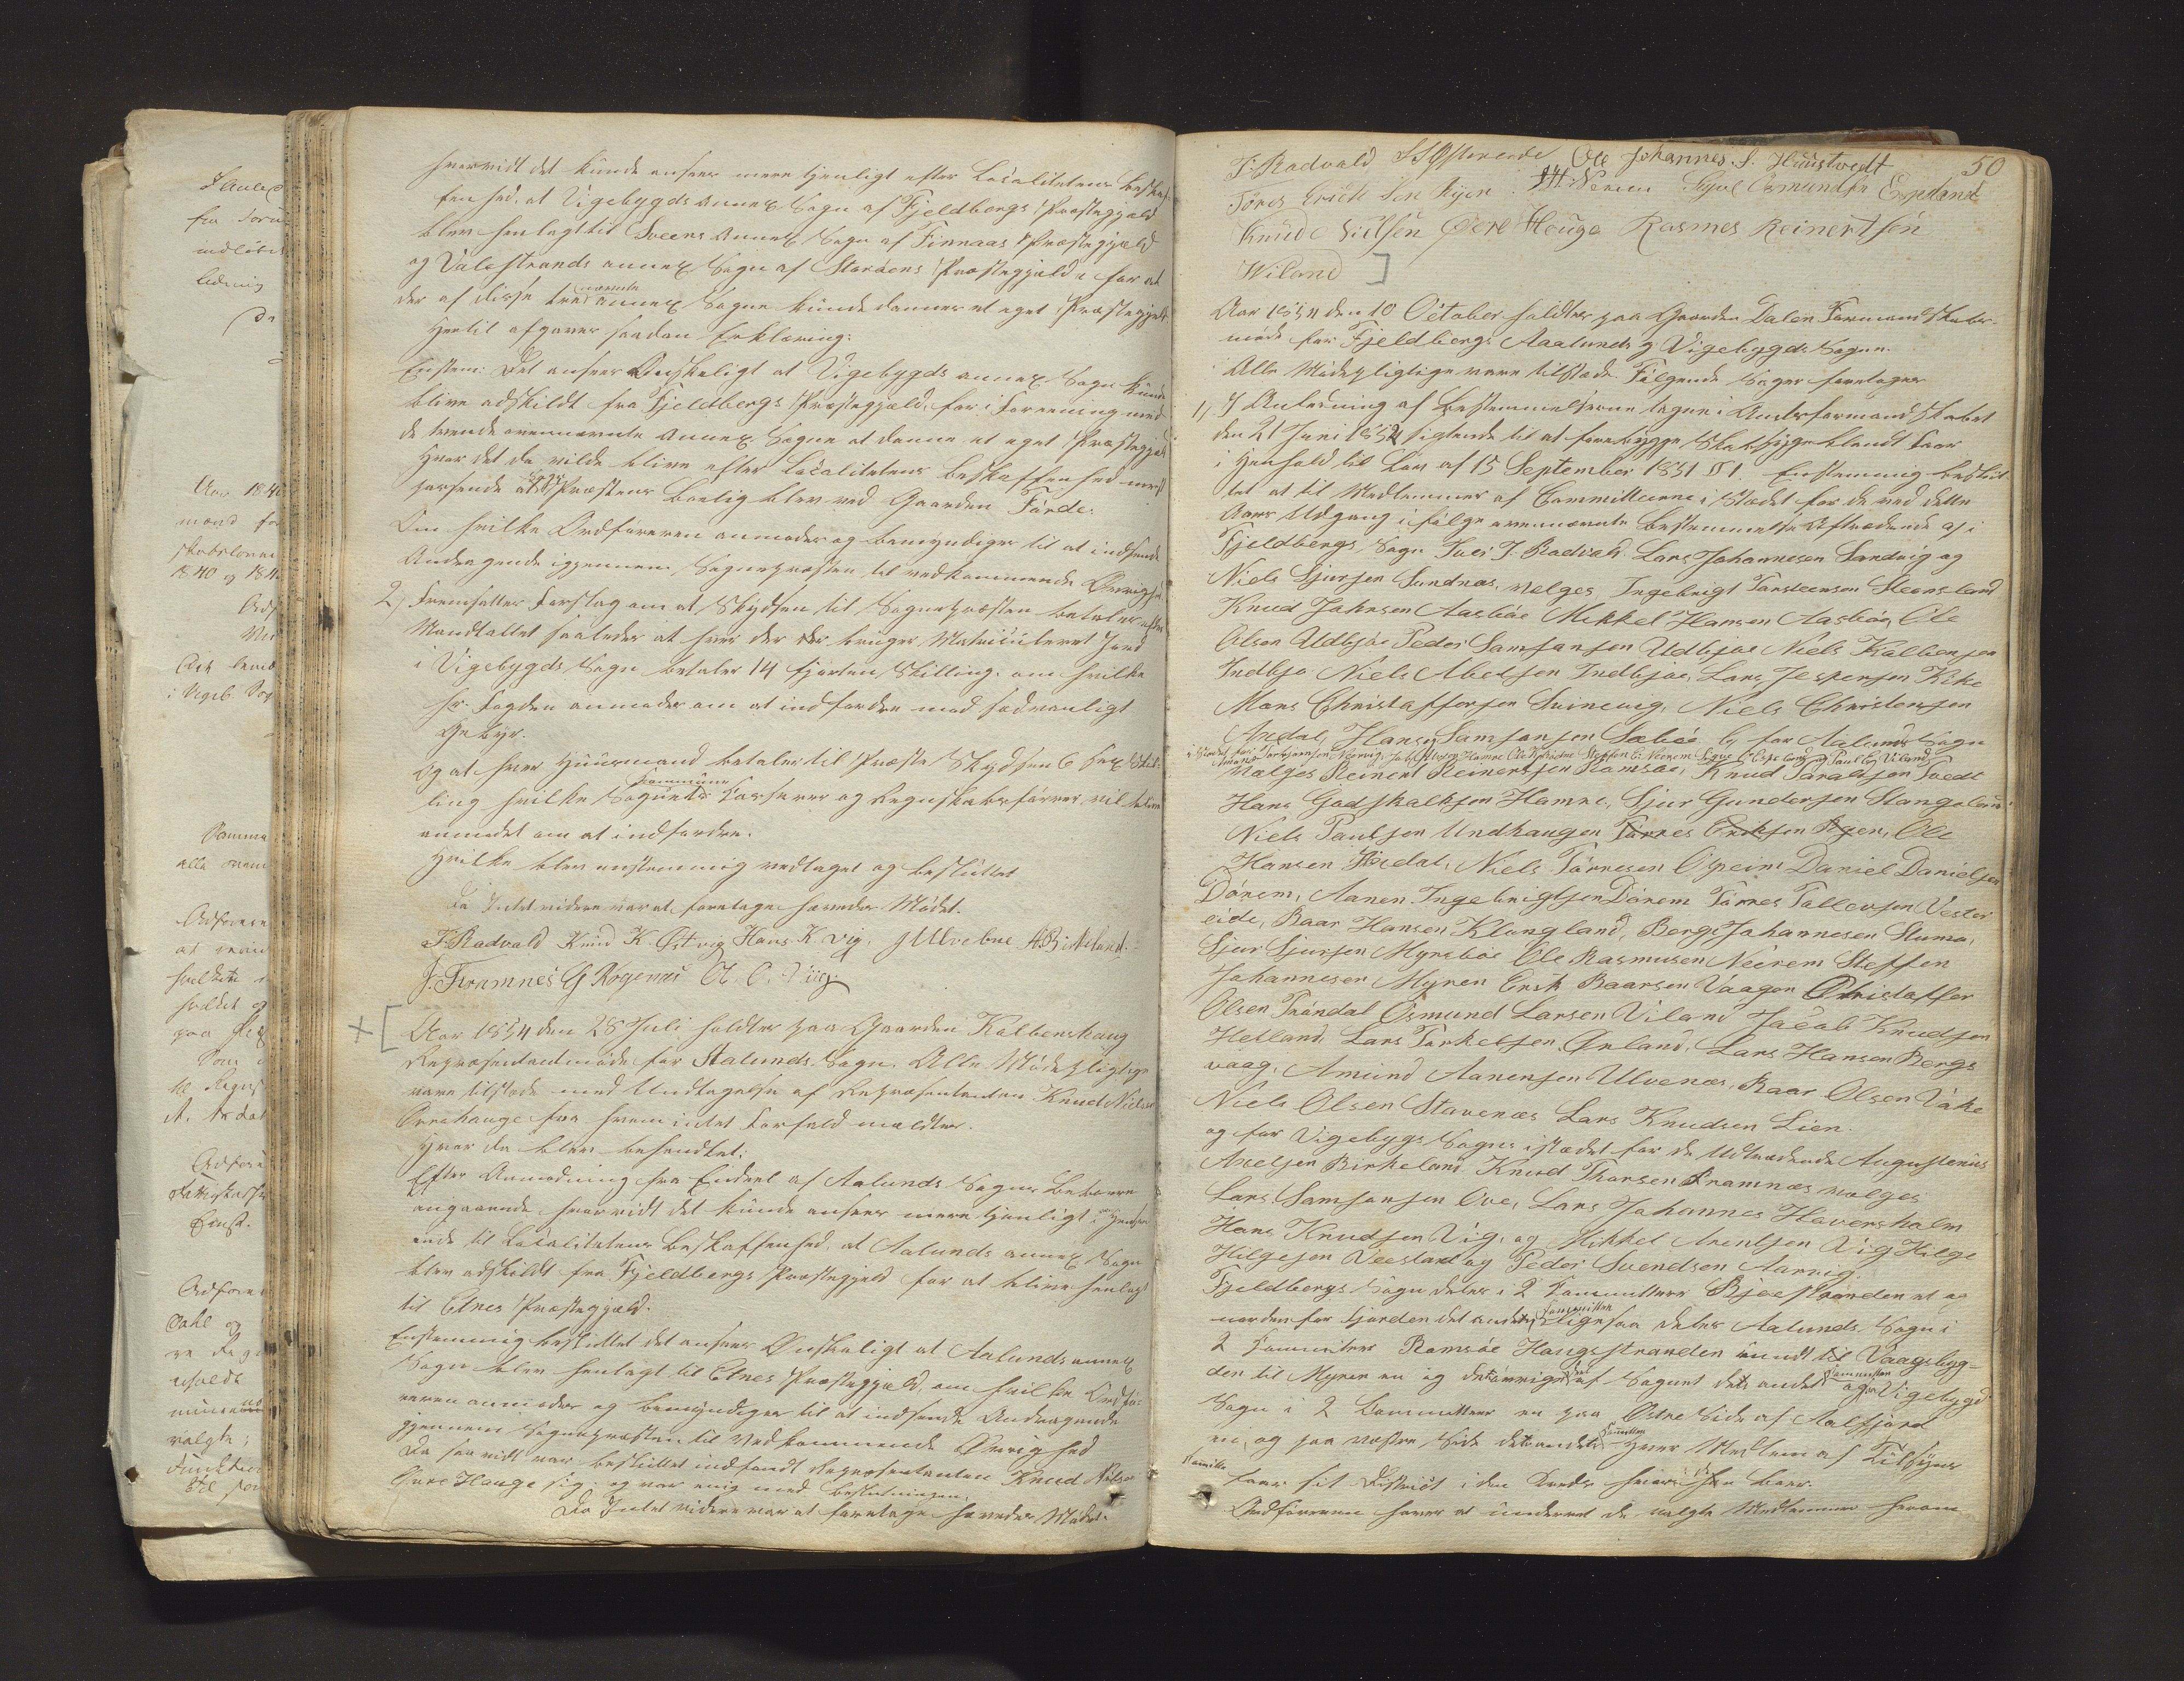 hvorvidt det kunde ansees mere tjenligt efter Localitetens Beskaf-
fenhed, at Vigebygds annex Sogn af Fjeldbergs Præstegjæld
blev henlagt til Sveens Annex Sogn af Finnaas Præstegjæld
og Valestrands annex Sogn af Storöens Præstegjæld for at
der af disse tre nævnte annex Sogne kunde dannes et eget Præstegjæld.
Hertil afgaves saadan Erklæring:
Enstem: Det ansees Ønskeligt at Vigebygds annex Sogn kunde
blive adskildt fra Fjeldbergs Præstegjæld, for i Forening med
de tvende ovennævnte annex Sogne at danne et eget Præstegjæld
hvor det da vilde blive efter Localitetens Beskaffenhed mest
passende at Præstens Boelig blev ved Gaarden Förde.
Om hvilke Ordföreren anmodes og bemyndiges til at indsende
Andragende igjennem Sognepræsten til vedkommende Øvrighed
2/ Fremsattes Forslag om at Skydsen til Sognepræsten betales efter
Mandtallet saaledes at hver der bruger Matriculeret Jord
i Vigebygds Sogn betaler 14 fjorten Skilling. om hvilke
Hr. Fogden anmodes om at indfordre med sædvanligt
Gebyr.
Og at hver Huusmand betaler til Præste Skydsen 6 sex Skil-
ling hvilke Sognets Commune Kasserer og Regnskabsförrer vil blive
anmodet om at indfordre.
Hvilke blev enstemmig vedtaget og besluttet
Da Intet videre var at foretage hævedes Mödet.
T. Radvald Knud K. Østvig Hans K. Vig. J Ulvebne A. Birkeland
J. Framnes G Rogenæs O. C. Vig
Aar 1854 den 28 Juli holdtes paa Gaarden Kalbenshaug
Repræsentantmöde for Aalunds Sogn. Alle Mödepligtige
vare tilstede med Undtagelse af Repræsentanten Knud Nielsen
Övrehauge fra hvem intet Forfald meldtes.
Hvor da blev behandlet:
Efter Anmodning fra Endeel af Aalunds Sogns Beboere
angaaende hvorvidt det kunde ansees mere tjenligt i Henseen
ende til Localitetens Beskaffenhed, at Aalunds annex Sogn
blev adskildt fra Fjeldbergs Præstegjeld for at blive henlagt
til Etnes Præstegjæld.
Enstemmig besluttet det ansees Ønskeligt at Aalunds annex
Sogn blev henlagt til Etnes Præstegjæld, om hvilke Ordfö-
reren anmodes og bemyndiges til at indsende Andragende
gjennem Sognepræsten til Vedkommende Øvrighed
Da saavidt var besluttet indfandt Repræsentanten Knud Nielsen
Övre Hauge sig, og var enig med Beslutningen.
Da Intet videre var at foretage hævedes Mödet.
50
T. Radvald Ole Johannes. S. Huustvedt
Törres Erick Sen Ryen Osmundsen Espeland
Knud Nielsen Övre Houge Rasmes Reinertsen
Wiland
Aar 1854 den 10 October holdtes paa Gaarden Dalen Formandskabs-
möde for Fjeldbergs Aalunds og Vigebygds Sogne.
Alle Mödepligtige vare tilstede. Fölgende Sager foretoges
1/ I Anledning af Bestemmelserne tagne i Amtsformandskabet
den 21 Juni 1852 sigtende til at forebygge Skabsyge blandt Faar
i Henhold til Lov af 15 September 1851 § 1. Enstemmig beslut-
tet at til Medlemmer af Committeerne i Stedet for de ved dette
Aars Udgang i fölge ovennævnte Bestemmelse Aftrædende af i
Fjeldbergs Sogn Iver T. Radvald Lars Johannesen Sandvig og
Niels Sjursen Sundnæs, vælges Ingebrigt Torsteensen Steensland
Knud Johnsen Aasböe Mikkel Hansen Aasböe, Ole
Olsen Udbjoe Peder Samsonsen Udbjoe Niels Kalbensen
Indbjo Niels Abelsen Indbjoe, Lars Jespersen Kike
Mons Christoffersen Svinevig, Niels Christensen
Andal, Hans Samsonsen Sæböe og for Aalunds Sogn
vælges Reinert Reinertsen Ramsöe, Knud Taraldsen Tvedt
Hans Godskalksen Hamre, Sjur Gundersen Stangeland
Niels Paulsen Undhaugen Törres Eriksen Ryen, Ole
Hansen Höidal, Niels Törresen Opeim Daniel Danielsen
Dörem, Aanen Ingebrigtsen Dörem Törres Tollevsen Vester
eide, Baar Hansen Klungland, Berge Johannesen Stumo,
Sjur Sjursen Myrsböe Ole Rasmusen Neerem Steffen
Johannesen Myren Erik Baarsen Vaagen Christoffer
Olsen Tröndal Osmund Larsen Viland Jacob Knudsen
Hetland, Lars Torkelsen Ørland, Lars Hansen Bergs
vaag, Amund Aanensen Ulvenæs, Baar Olsen Vake
Niels Olsen Stavenæs Lars Knudsen Lien.
og for Vigebygs Sogns istædet for de Udtrædende Augustenius
Axelsen Birkeland Knud Thorsen Framnæs vælges
Lars Samsonsen Ove, Lars Johannes Haversholm
Hans Knudsen Vig, og Mikkel Arentsen Vig Hilge
Hilgesen Veesland og Peder Svendsen Aarvig.
Fjeldbergs Sogn deles i 2 Committeer Bjoestranden et og
norden for Fjorden det andet Committee Ligesaa deles Aalunds Sogn i
2 Committeer Ramsöe Haugsstranden rundt til Vaagsbyg-
den til Myren en og det övrige af Sognet det andet Committee og Vigebygd
Sogn i 2 Committeer en paa Østre Side af Aalfjord
en, og paa vestre Side det andet Committee Hver Medlem af Tilsyns
Committee faaer sit District i den Kreds hvori han boer.
Ordföreren haver at underret de valgte Medlemmer herom